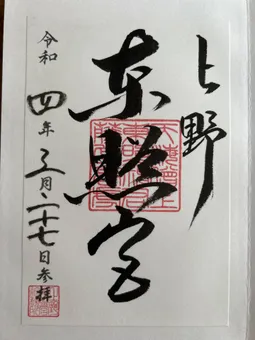 上野
東照宮
令和四年三月二十七日参拝